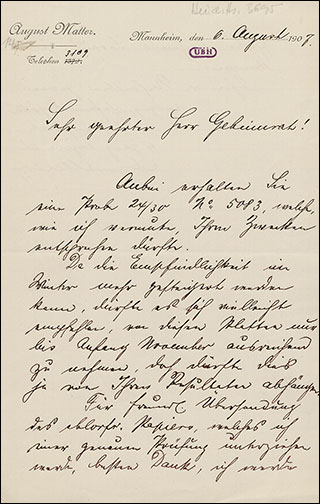 Heid. Hs. 3695
August Matter.
Telephon 1070. 3109
Mannheim, den 6. August 1907.
UBH
Sehr geehrter Herr Geheimrat!
Anbei erhalten Sie
eine Prob. 24/30 No 5083, welche,
wie ich vermute, Ihren Zwecken
entsprechen dürfte.
Da die Empfindlichkeit im
Winter mehr gesteigert werden
kann, dürfte es sich vielleicht
empfehlen, von diesen Platten nur
bis Anfang November ausreichend
zu nehmen, doch dürfte dies
ja von Ihren Resultaten abhängen.
Für freundl. Übersendung
des Papiers, welches ich
einer genauen Prüfung unterziehen
werde, besten Dank, ich werde